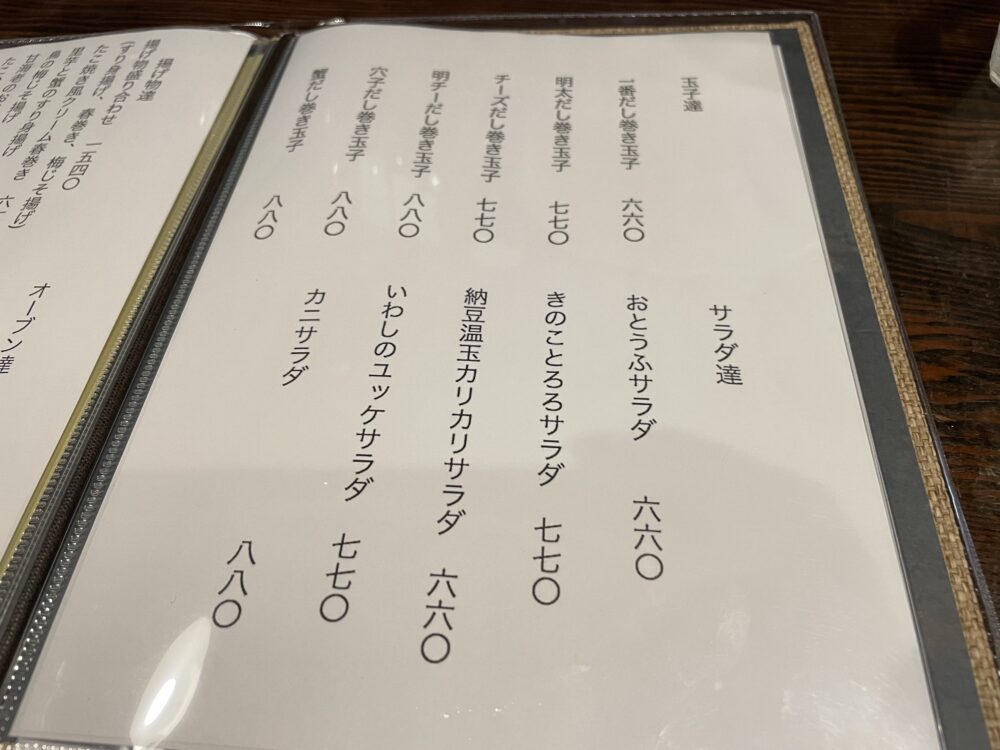 玉子達
一番だし巻き玉子 六六〇
明太だし巻き玉子 七七〇
チーズだし巻き玉子 七七〇
明チーだし巻き玉子 八八〇
穴子だし巻き玉子 八八〇
蟹だし巻き玉子 八八〇
サラダ達
おとうふサラダ 六六〇
きのことろろサラダ 七七〇
納豆温玉カリカリサラダ 六六〇
いわしのユッケサラダ 七七〇
カニサラダ 八八〇
揚げ物達
揚げ物盛り合わせ 一五四〇
(すり身揚げ、春巻き、梅じそ揚げ)
たこ焼き風クリーム春巻き
里芋と蟹のすり身揚げ
鳥の梅じそ揚げ
甘海老のお
オーブン達